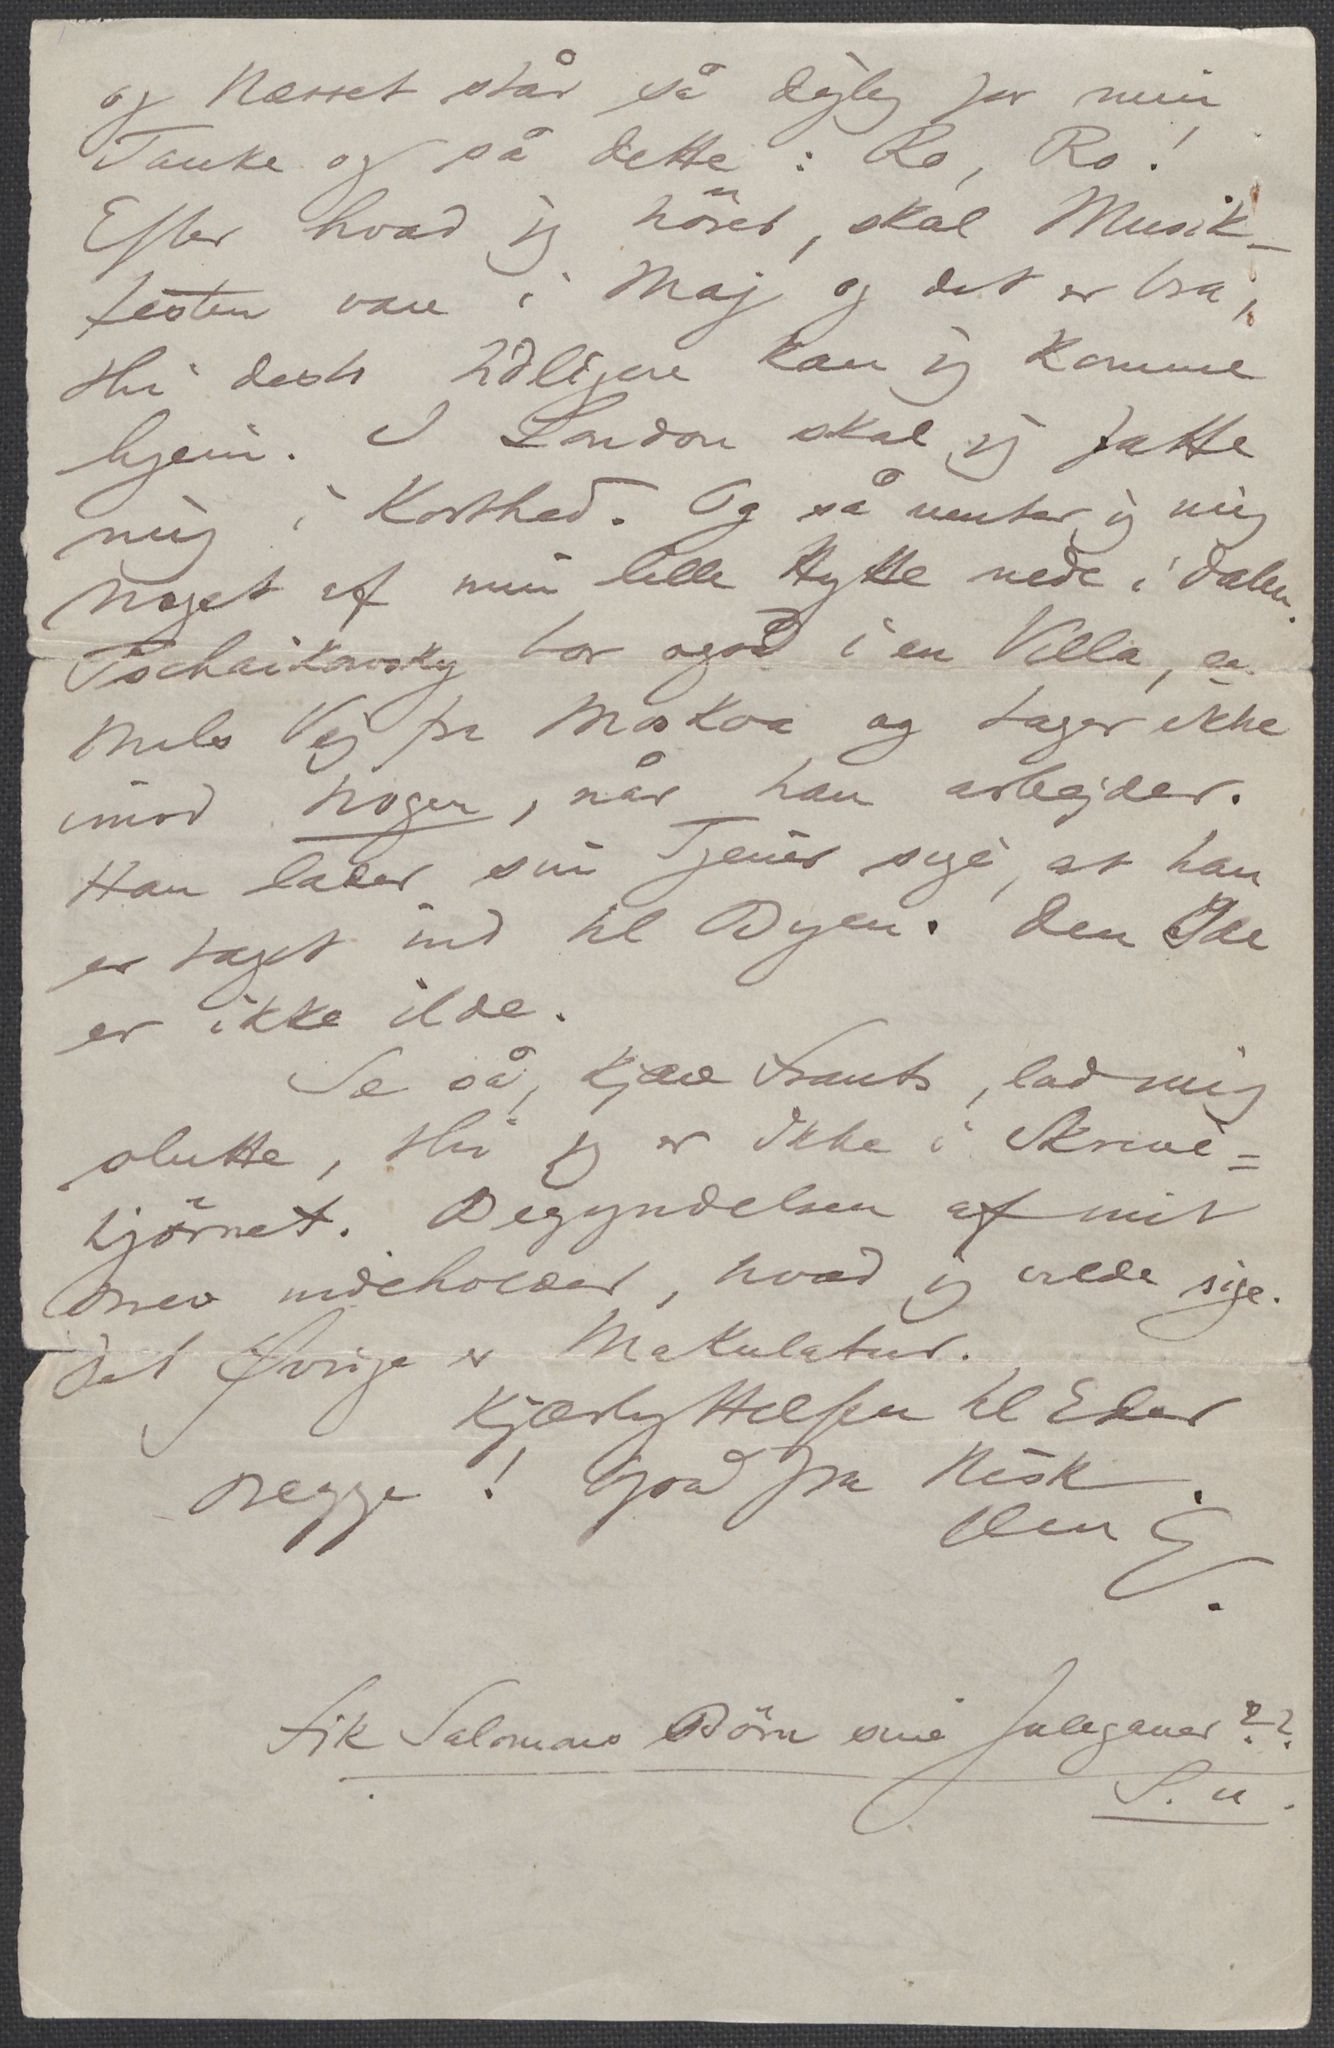 og Næsset står så dejlig for min
Tanke og så dette: Ro, Ro!
Efter hvad jeg hörer, skal Musik-
festen være i Maj og det er bra,
thi desto tidligere kan jeg komme
hjem. I London skal jeg fatte
mig i Korthed. Og så venter jeg mig
noget af min lille Hytte nede i Dalen.
Tschaikowsky bor også i en Villa, en
Mils Vej fra Moskva og tager ikke
imod nogen, når han arbejder.
Han lader sin Tjener sige, at han
er taget ind til Byen. Den Ide
er ikke ilde.
Se så, kjære Frants, lad mig
slutte, thi jeg er ikke i Skrive=
hjörnet. Begyndelsen af mit
Brev indeholder, hvad jeg vilde sige.
Det Øvrige er Makulatur.
Kjærlig Hilsen til Eder
Begge! God fra Nisk.
Din E.
Fik Salomons Börn sine Julegaver??
S. u.